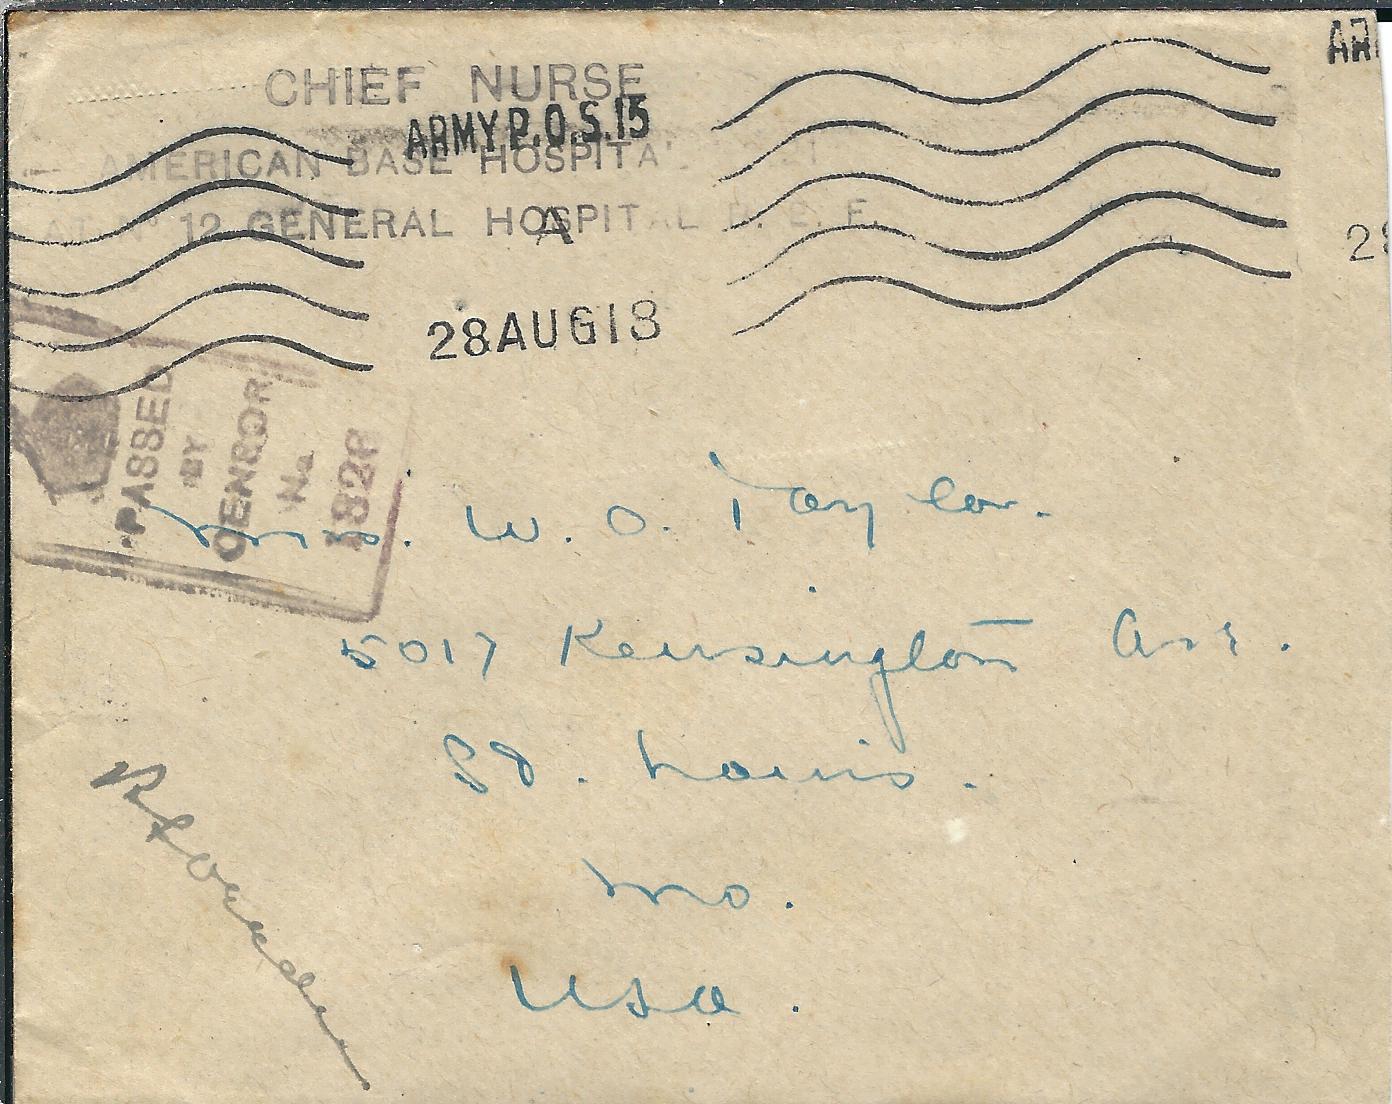 CHIEF NURSE
ARMY P.O.S.15
AMERICAN BASE HOSPITAL 21
AT No 12 GENERAL HOSPITAL B. E. F.
A
28AUG18
AR
28
PASSED
BY
CENSOR
No.
Mrs. W. O. Taylor.
5017 Kensington Ave.
St. Louis.
Mo.
USA.